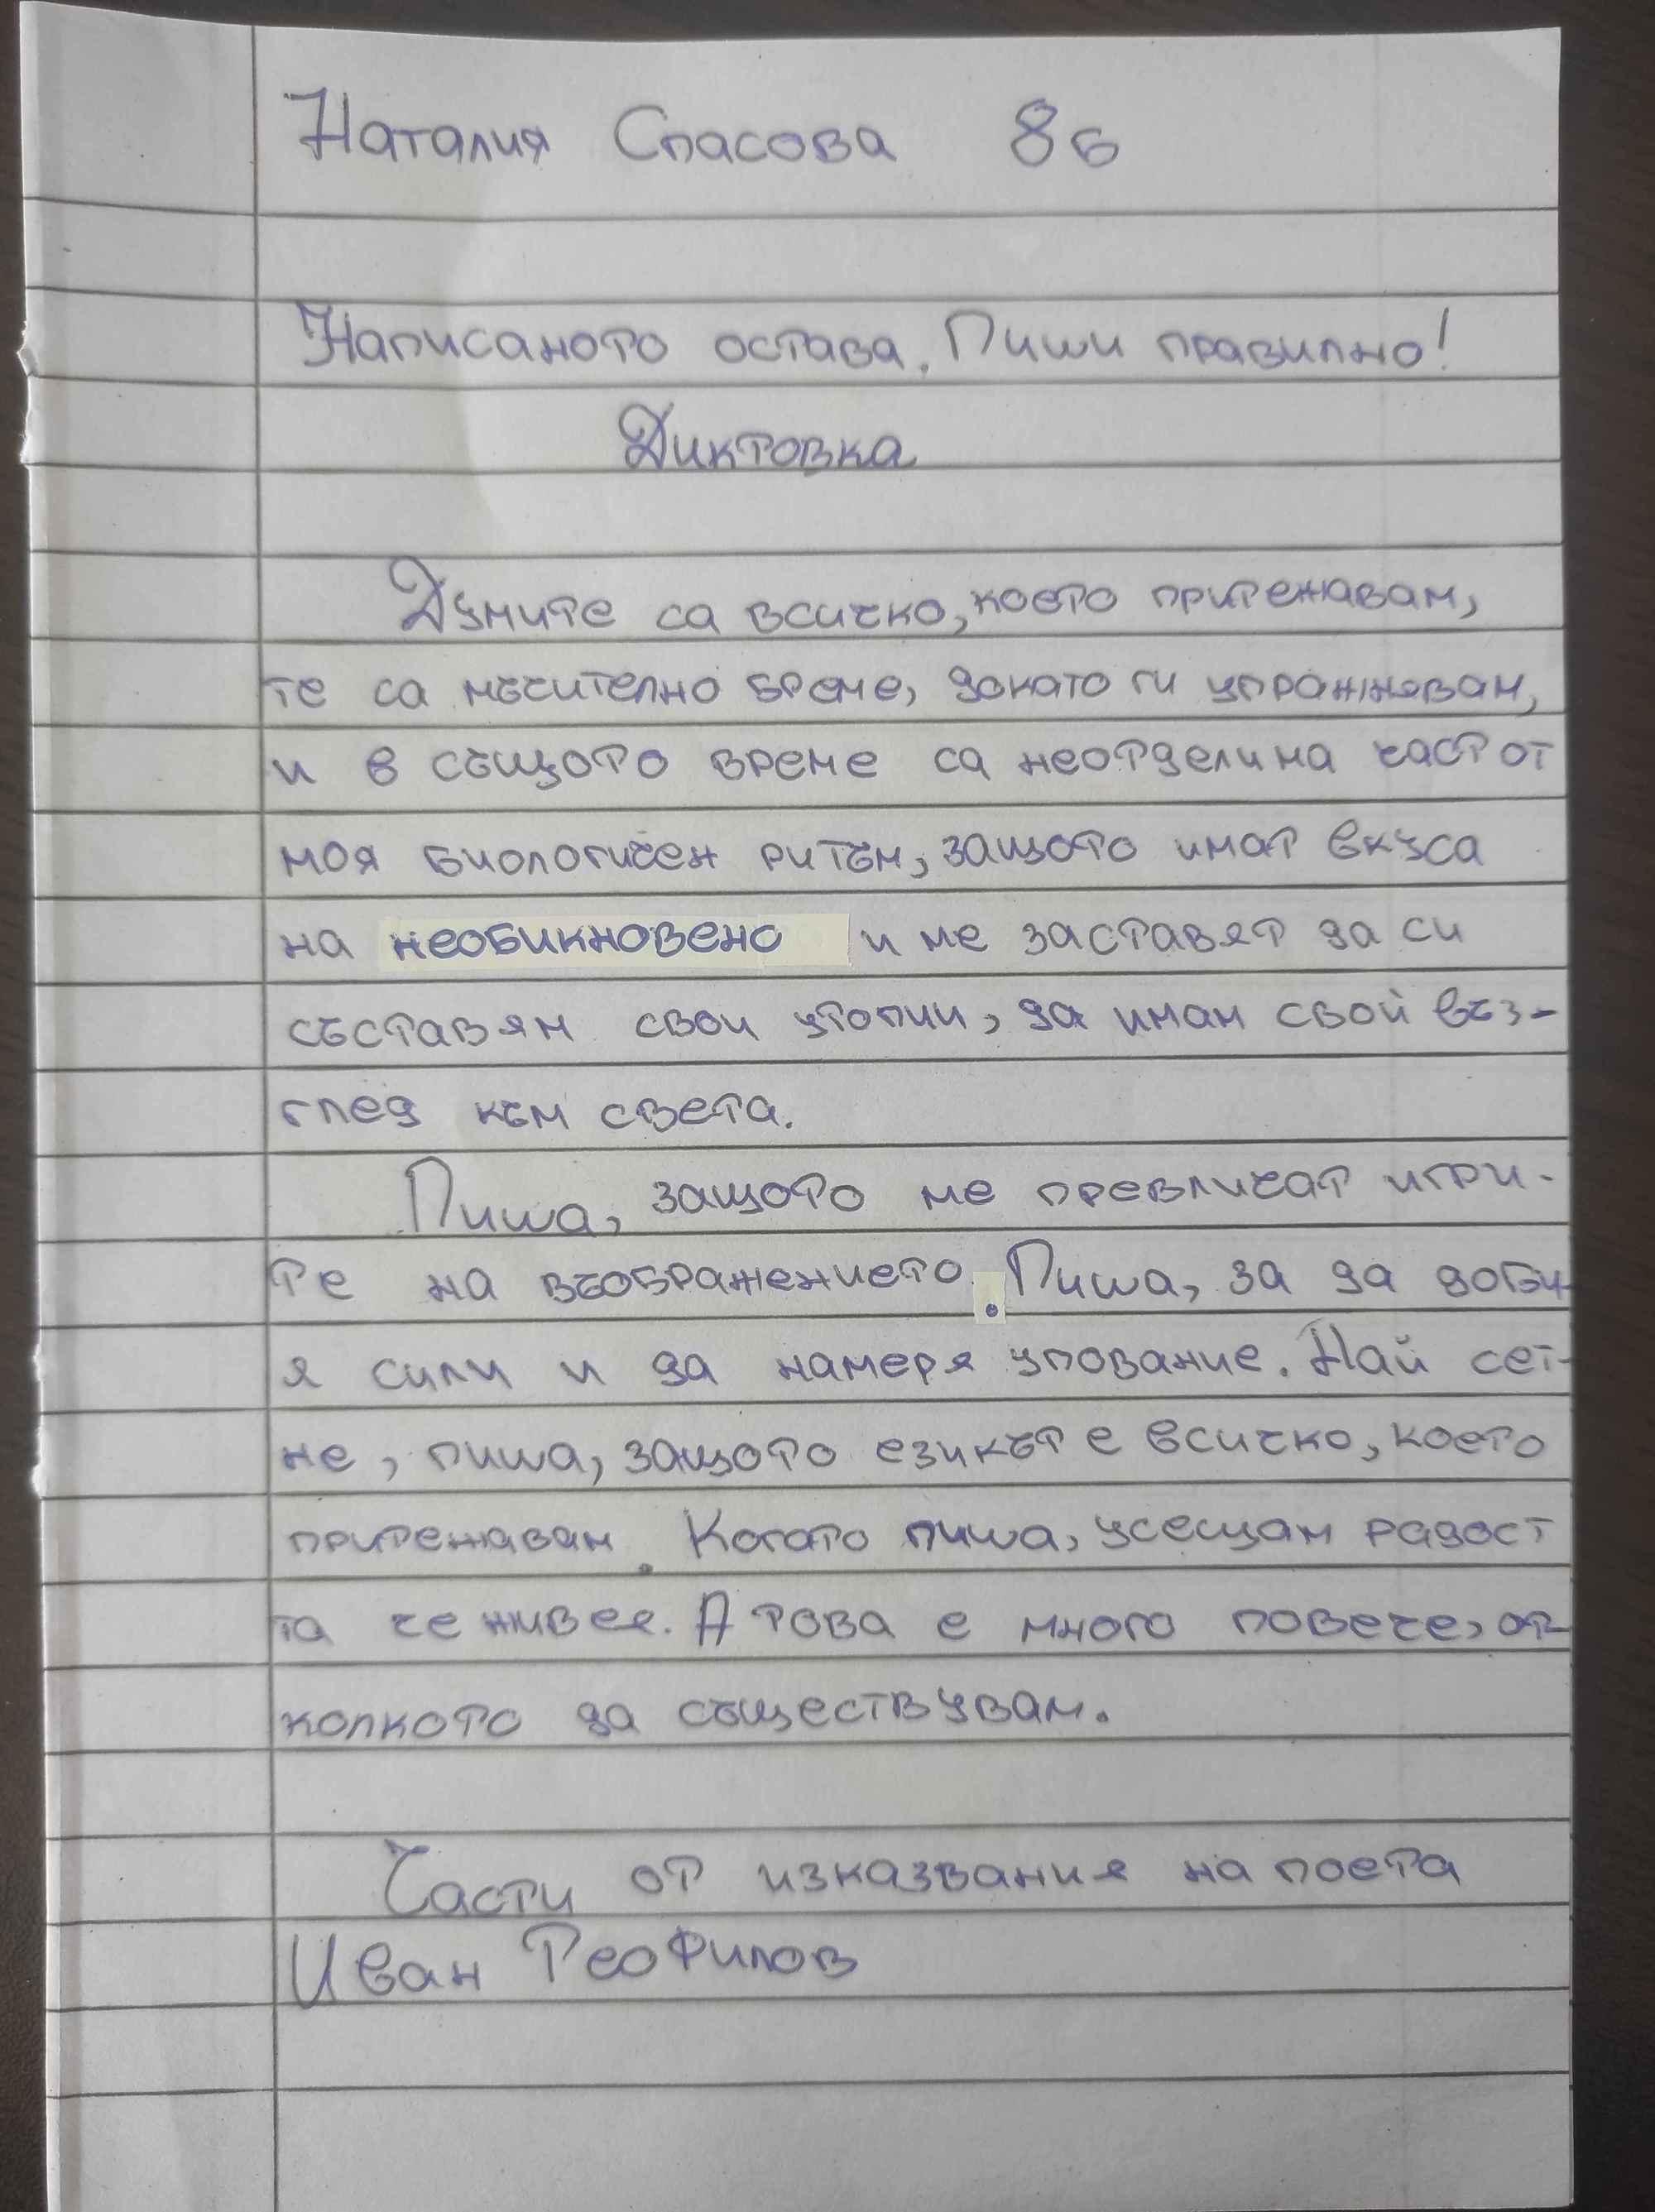 Наталия Спасова 8б
Написаното остава. Пиши правилно!
Диктовка
Думите са всичко, което притежавам,
те са мъчително бреме, докато ги упражнявам,
и в същото време са неотделима част от
моя биологичен ритъм, защото имат вкуса
на необикновено и ме заставят да си
съставям свои утопии, да имам свой въз-
глед към света.
Пиша, защото ме превличат игри-
те на въображението. Пиша, за да доби-
я сили и да намеря упование. Най сет-
не, пиша, защото езикът е всичко, което
притежавам. Когато пиша, усещам радост
та че живея. А това е много повече, от-
колкото да съществувам.
Части от изказвания на поета
Иван Теофилов